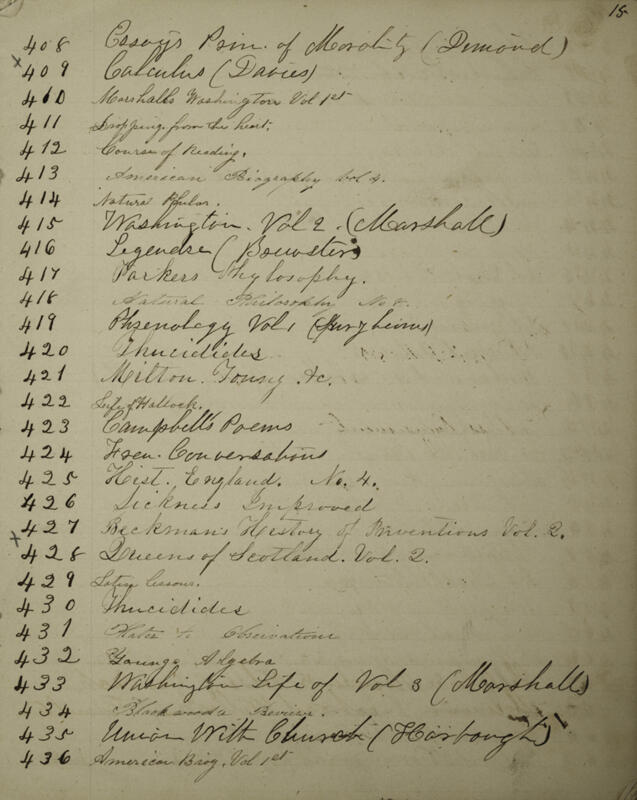 15
408 Essays Prin. of Morality (Dimond)
x 409 Calculus (Davies)
410 Marshalls Washington Vol 1st
411 Dropping from the heart.
412 Course of Reading.
413 American Biography Vol 4.
414 Natural
415 Washington. Vol 2. (Marshall)
416 Legendre (Brewster)
417 Parkers Phylosophy.
418 Natural Philosophy No
419 Phrenology Vol 1 (Spurzheims)
420 Thucidides
421 Milton. Young &c.
422 Life of Hallock.
423 Campbells Poems
424 Fren. Conversations
425 Hist. England. No. 4.
426 Sickness Improved
427 Beckman's History of Inventions Vol. 2.
x 428 Queens of Scotland. Vol. 2.
429 Latin lessons.
430 Thucidides
431 Observations
432 Youngs Algebra
433 Washington Life of Vol 3 (Marshall)
434 Blackwoods Review.
435 Union With Church (Harbough)
436 American Biog. Vol 1st